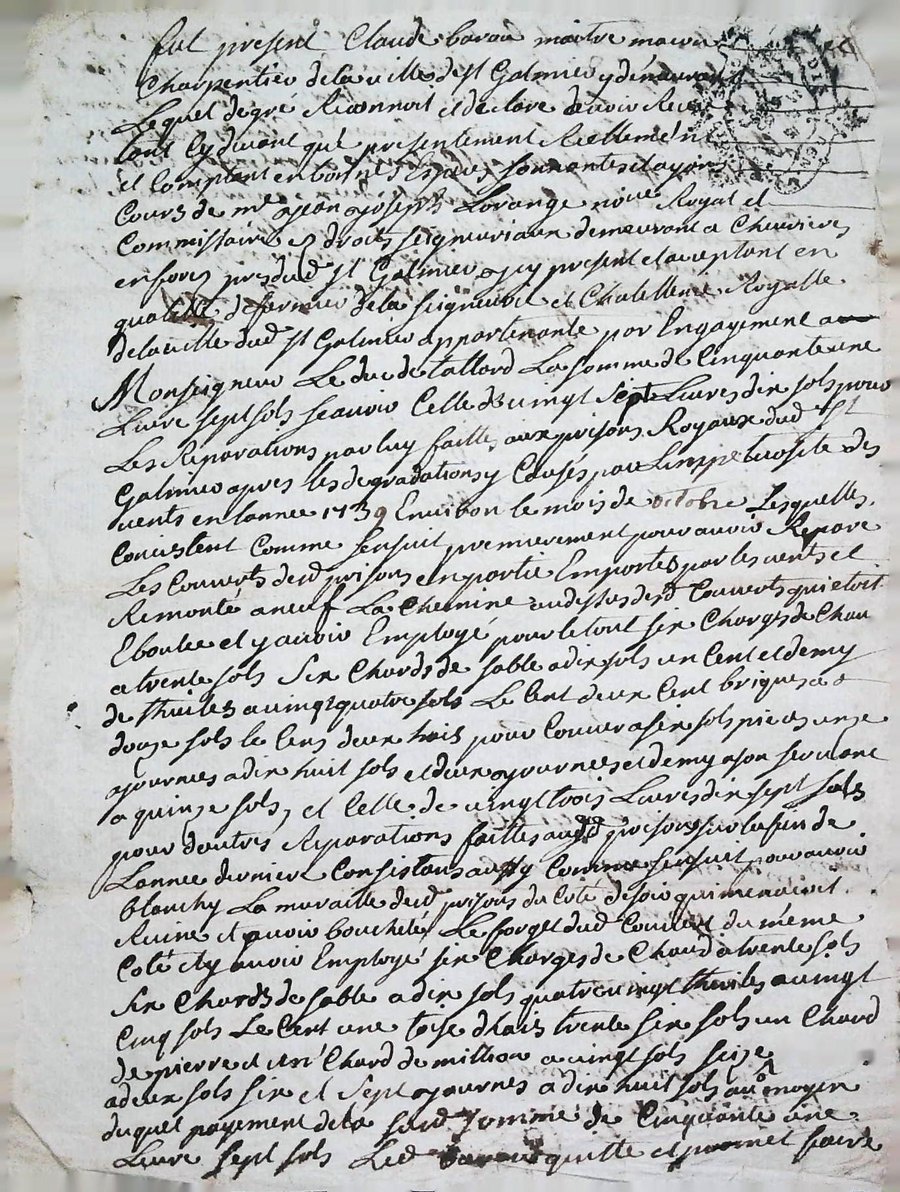 fut present Claude barou maitre maçon
Charpentier de la ville de st Galmier y demeurant
Lequel de gré Reconnoit et declare davoir Receu
tant cy devant que presentement Reellement
et Comptant en bonnes Especes sonnantes et ayant
Cours de me jean joseph Lorange noire Royal et
Commissaire es droits seigneuriaux demeurant a Chevrieres
en fores pres dud st Galmier icy present et acceptant en
qualité de fermier de la seigneurie et Chatellenie Royalle
de la ville dud st Galmier appartenante par Engagement a
Monseigneur Le duc de tallard La somme de Cinquante une
Livre sept sols scavoir Celle de vingt sept Livres dix sols pour
Les Reparations par luy faittes aux prisons Royaux dud st
Galmier apres les degradations y Causés par Limpetuosite des
vents en lannee 1739 Environ le mois de octobre Lesquelles
Concistent Comme sensuit premierement pour avoir Reparé
Les Couverts desd prisons en partie Emportés par les vents et
Remonté a neuf La Cheminé audessus desd Couverts qui etoit
Eboulee et y avoir Employé pour le tout six Charges de Chau
a trente sols six Chards de sable a dix sols un Cent et demy
de thuiles a vingt quatre sols Le Cent deux Cent briques a
douze sols le Cens deux hais pour Couver a six sols pieces onze
journees a dix huit sols et deux journees et demy a son servient
a quinze sols, et Celle de vingt trois Livres dix sept sols
pour dautres Reparations faittes auxd prisons sur la fin de
Lannee derniere Consistans aussy Comme sensuit pour avoir
blanchy La muraille desd prisons du Coté de soir qui menacoit
Ruine et avoir boucheté Le forget dud Couvert du même
Coté et y avoir Employé six Charges de Chaud a trente sols
six Chards de sable a dix sols quatre vingt thuiles a vingt
Cinq sols Le Cent une toise dhais trente six sols un Chard
de pierre et un Chard de million a vingt sols seize
a deux sols six et sept journes a dix huit sols au moyen
duquel payement de la susd somme de Cinquante une
Livre sept sols Led barou quitte et promet faire